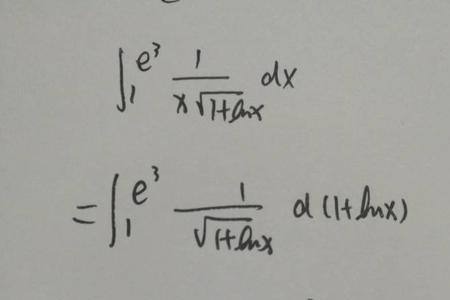 ∫₁^{e³} 1/(x√(1+lnx)) dx
= ∫₁^{e³} 1/√(1+lnx) d(1+lnx)